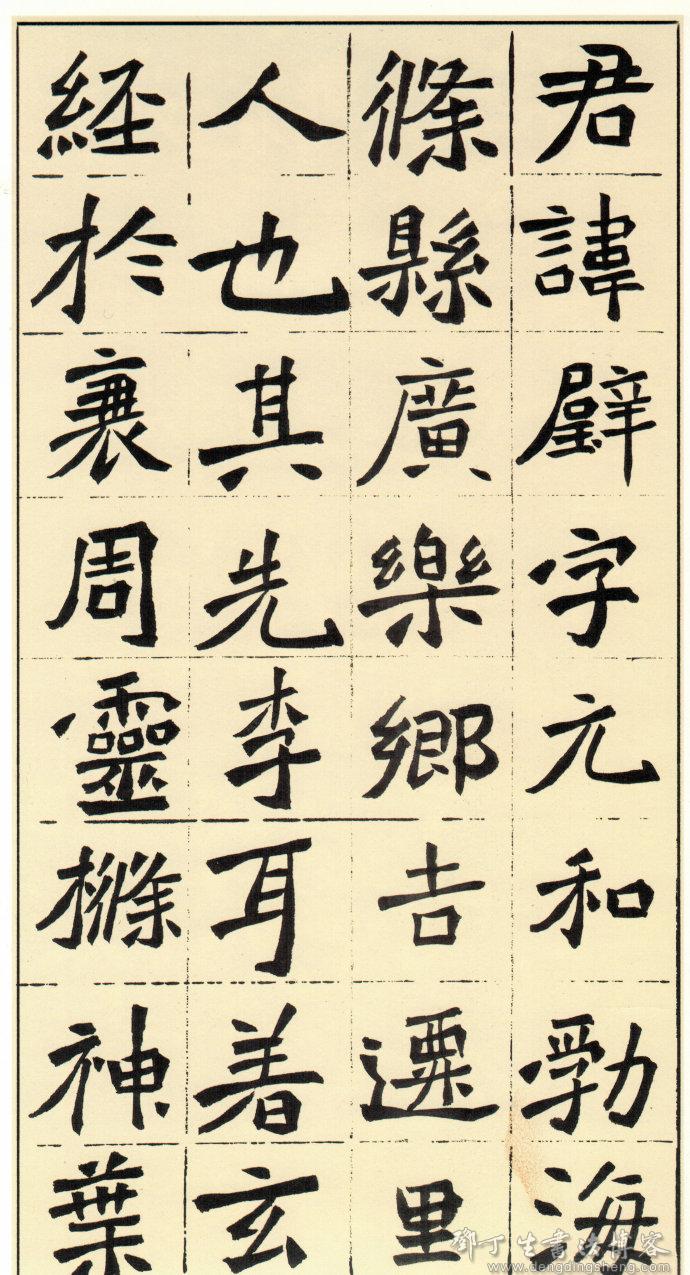 君諱璧字元和勃海
條縣廣樂鄉吉遷里
人也其先李耳着玄
經於衰周靈樤神葉
鄧丁生書法博客
www.dengdingsheng.com